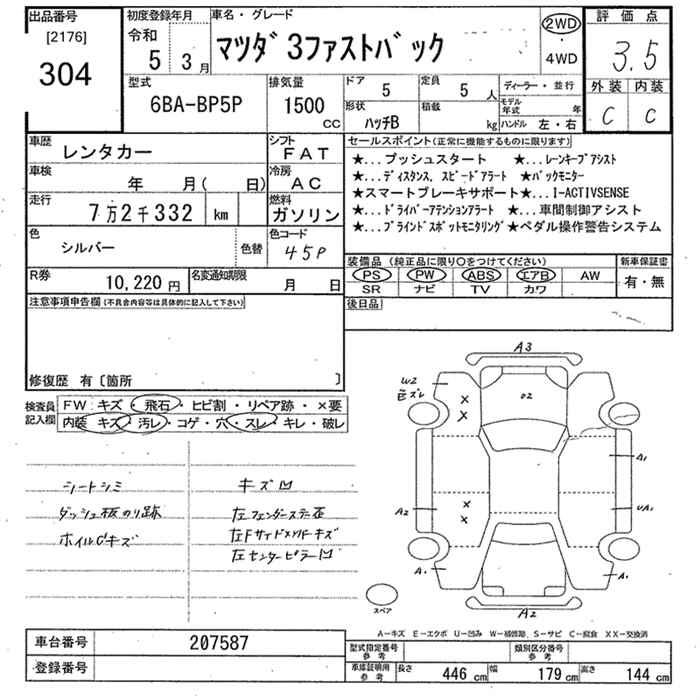 出品番号
[2176]
304
初度登録年月
令和
5 3月
車名・グレード
マツダ 3ファストバック
2WD
・
4WD
評価点
3.5
外装 内装
C C
型式
6BA-BP5P
排気量
1500
CC
ドア
5
定員
5 人
形状
ハッチB
積載
kg
ディーラー・並行
モデル年式 年
ハンドル 左・右
車歴
レンタカー
シフト
FAT
車検
年 月( 日)
冷房
AC
走行
7万2千332 km
燃料
ガソリン
色
シルバー
色替
色コード
45P
R券
10,220円
名変通知期限
月 日
セールスポイント(正常に機能するものに限ります)
★...プッシュスタート ★...レーンキープアシスト
★...ディスタンス、スピードアラート ★バックモニター
★スマートブレーキサポート★...I-ACTIVSENSE
★...ドライバーアテンションアラート ★...車間制御アシスト
★...ブラインドスポットモニタリング★ペダル操作警告システム
装備品(純正品に限り○をつけてください)
新車保証書
PS PW ABS エアB AW
有・無
SR ナビ TV カワ
後日品
注意事項申告欄(不具合内容等は具体的に記入して下さい)
修復歴 有〔箇所 〕
検査員記入欄
FW キズ・飛石・ヒビ割・リペア跡・×要
内装 キズ・汚レ・コゲ・穴・スレ・キレ・破レ
シートシミ
ダッシュ板のり跡
ホイルCキズ
キズ凹
左フェンダーステー歪
左Fサイドメンバーキズ
左センターピラー凹
A3
W2
ズレ
×
×
A1
A2
×
×
UA1
A1
A1
A2
スペア
A-キズ E-エクボ U-凹み W-補修跡 S-サビ C-腐食 XX-交換済
車台番号
207587
登録番号
型式指定番号
参考
類別区分番号
参考
車庫証明用
参考
長さ
446 cm
幅
179 cm
高さ
144 cm